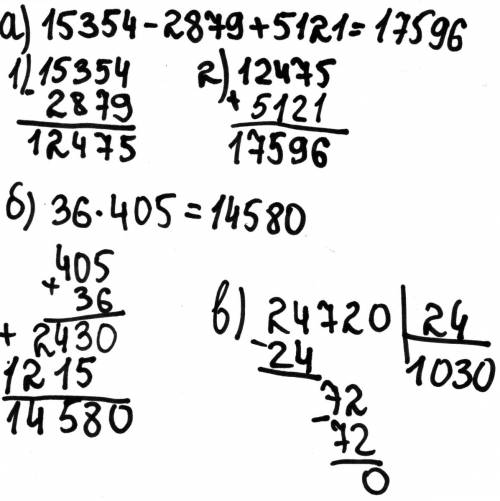 а) 15354-2879+5121=17596
1) 15354
- 2879
12475
2) 12475
+ 5121
17596
б) 36·405=14580
405
+ 36
+ 2430
1215
14580
в) 24720 | 24
- 24
1030
72
- 72
0